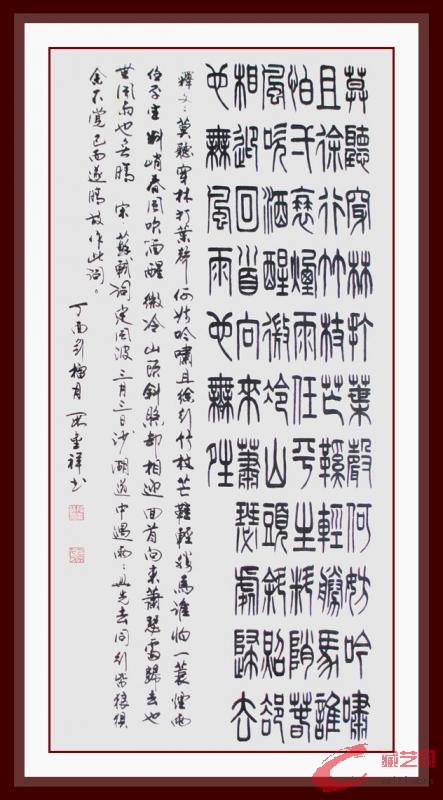 莫聽穿林打葉聲何妨吟嘯
且徐行竹枝芒鞋輕勝馬誰
怕一蓑煙雨任平生料峭春
風吹酒醒微冷山頭斜照卻
相迎回首向來蕭瑟處歸去
也無風雨也無晴
釋文：莫聽穿林打葉聲何妨吟嘯且徐行竹枝芒鞋輕勝馬誰怕一蓑煙雨
任平生料峭春風吹酒醒微冷山頭斜照卻相迎回首向來蕭瑟處歸去也
無風雨也無晴 宋蘇軾詞定風波三月三日沙湖道中遇雨雨具先去同行皆狼狽
余不覺已而遂晴故作此詞。
丁酉 榴月 祥書